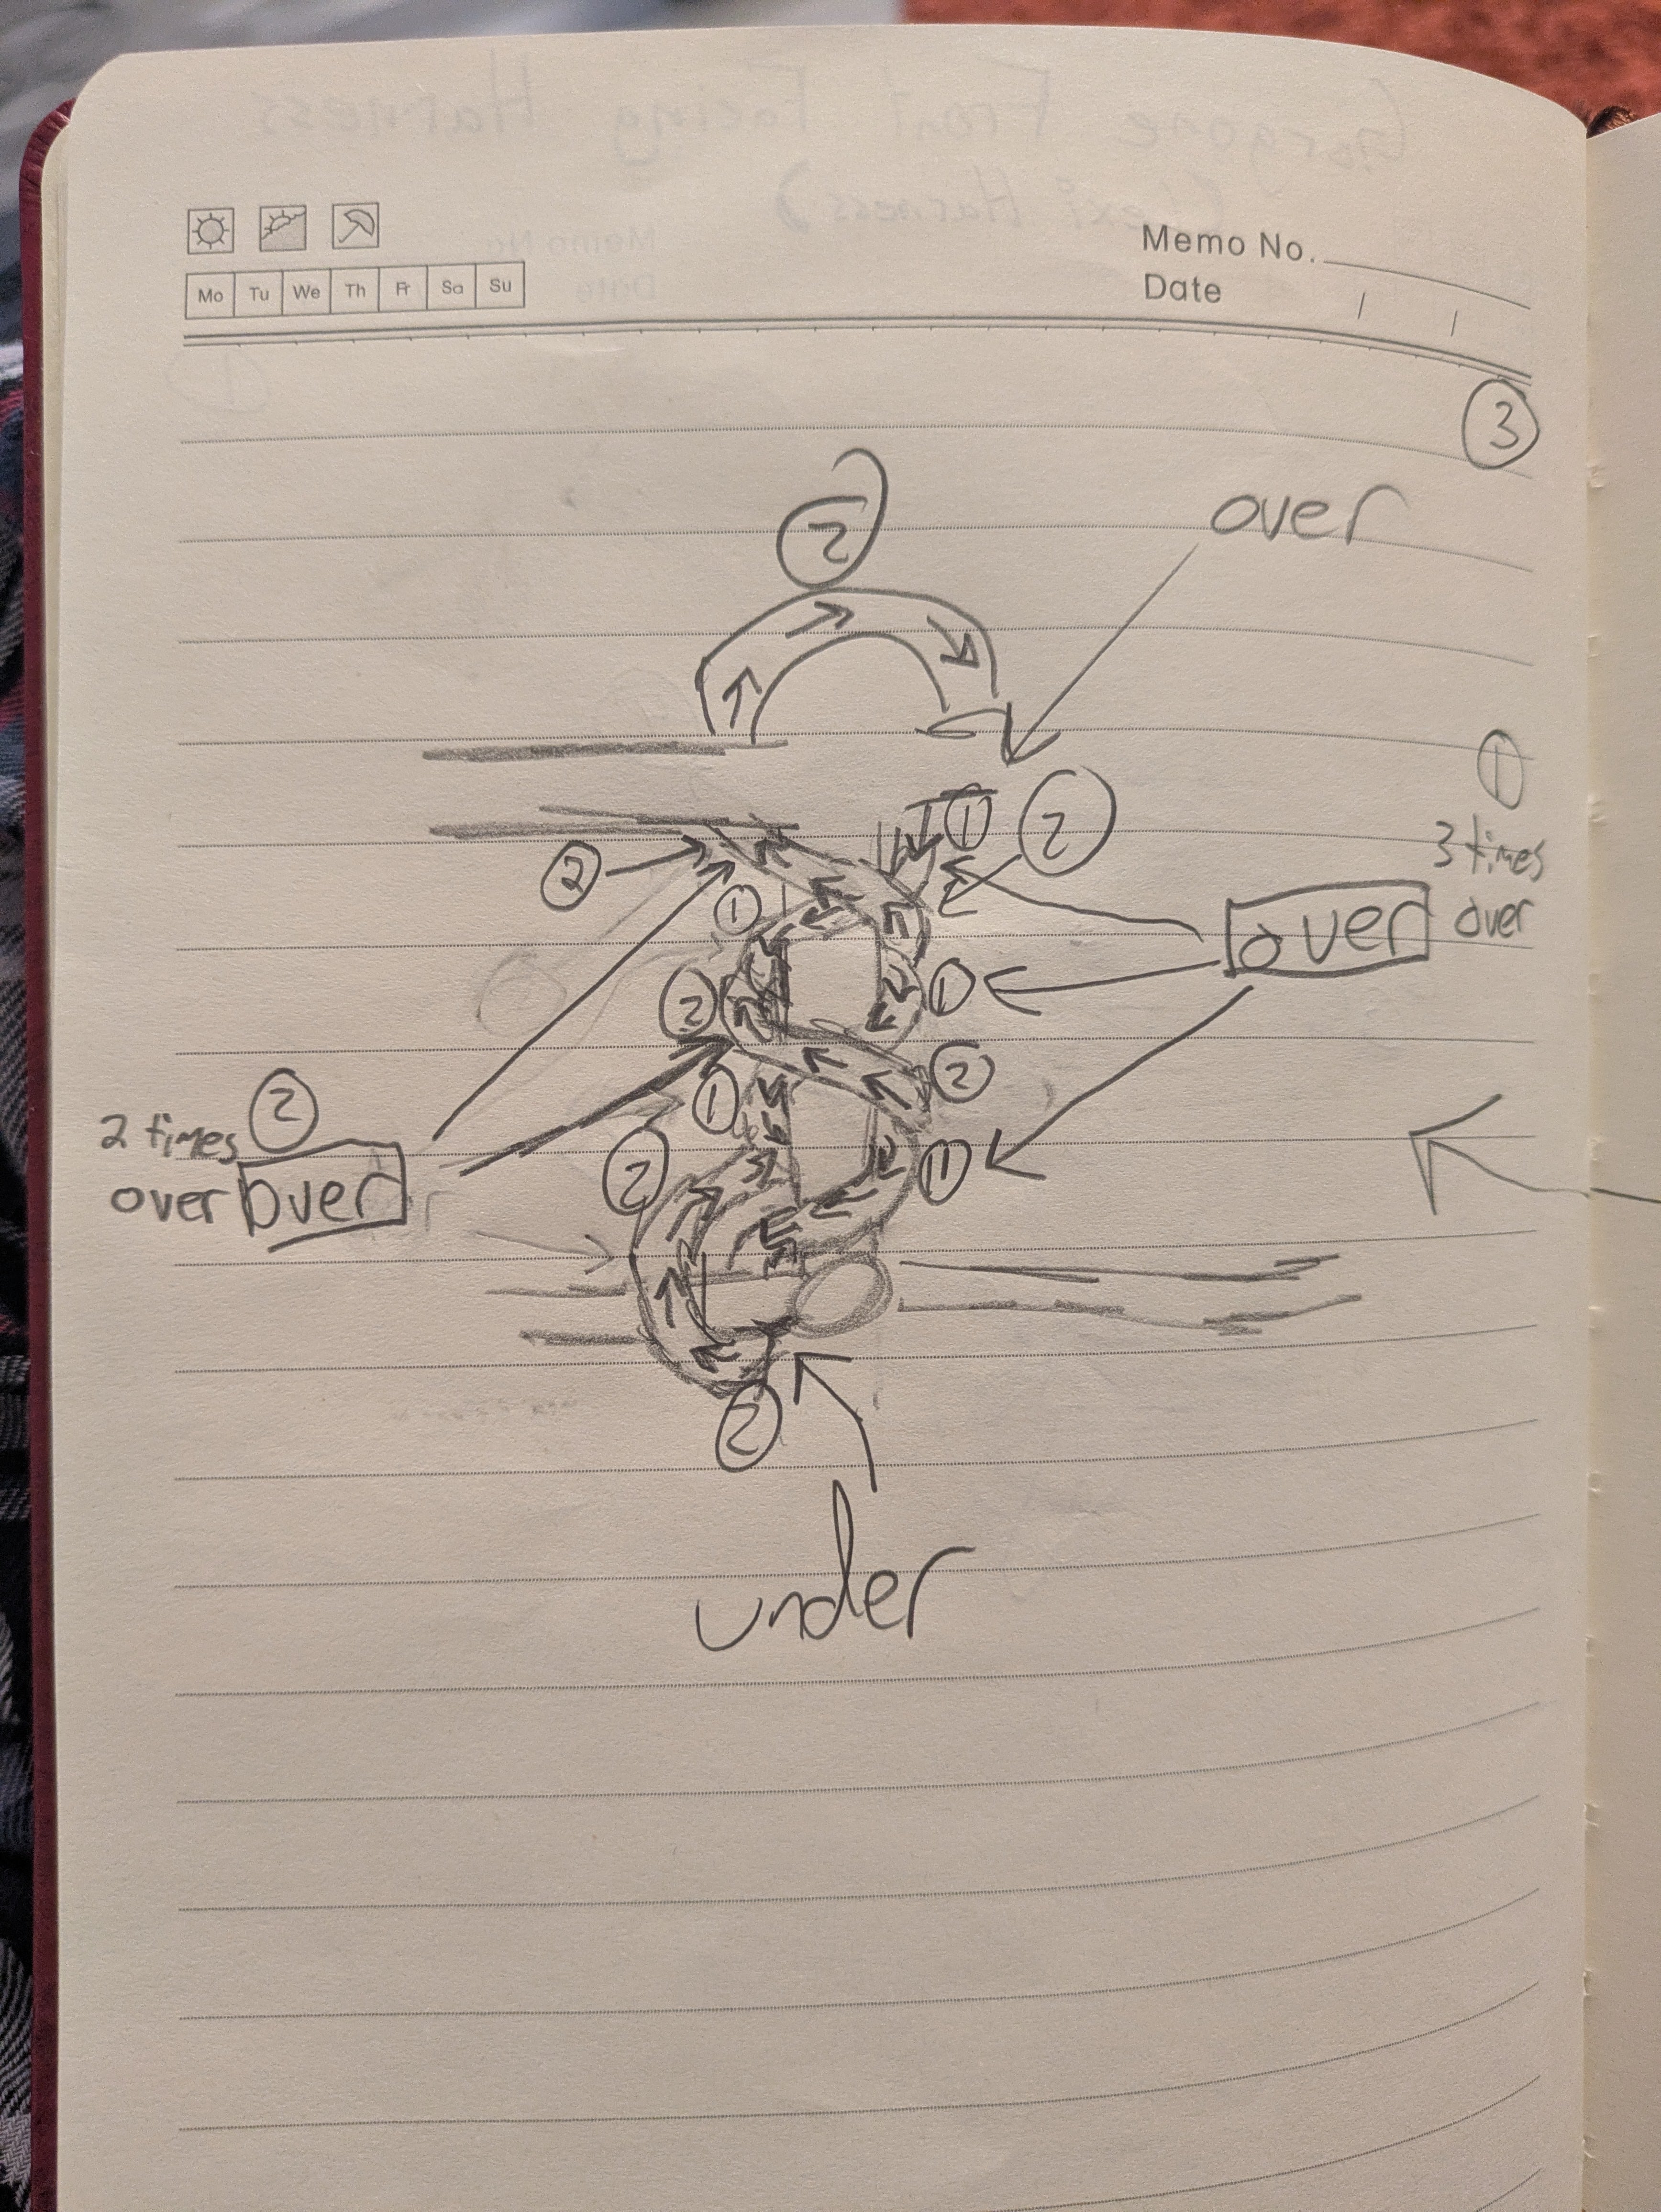 Gorgone Front Facing Harness
Memo No.
Mo Tu We Th Fr Sa Su
Date
3
2
over
1
1
2
3 times
2
1
over
over
2
1
2
1
2
2 times
2
1
over
over
2
under